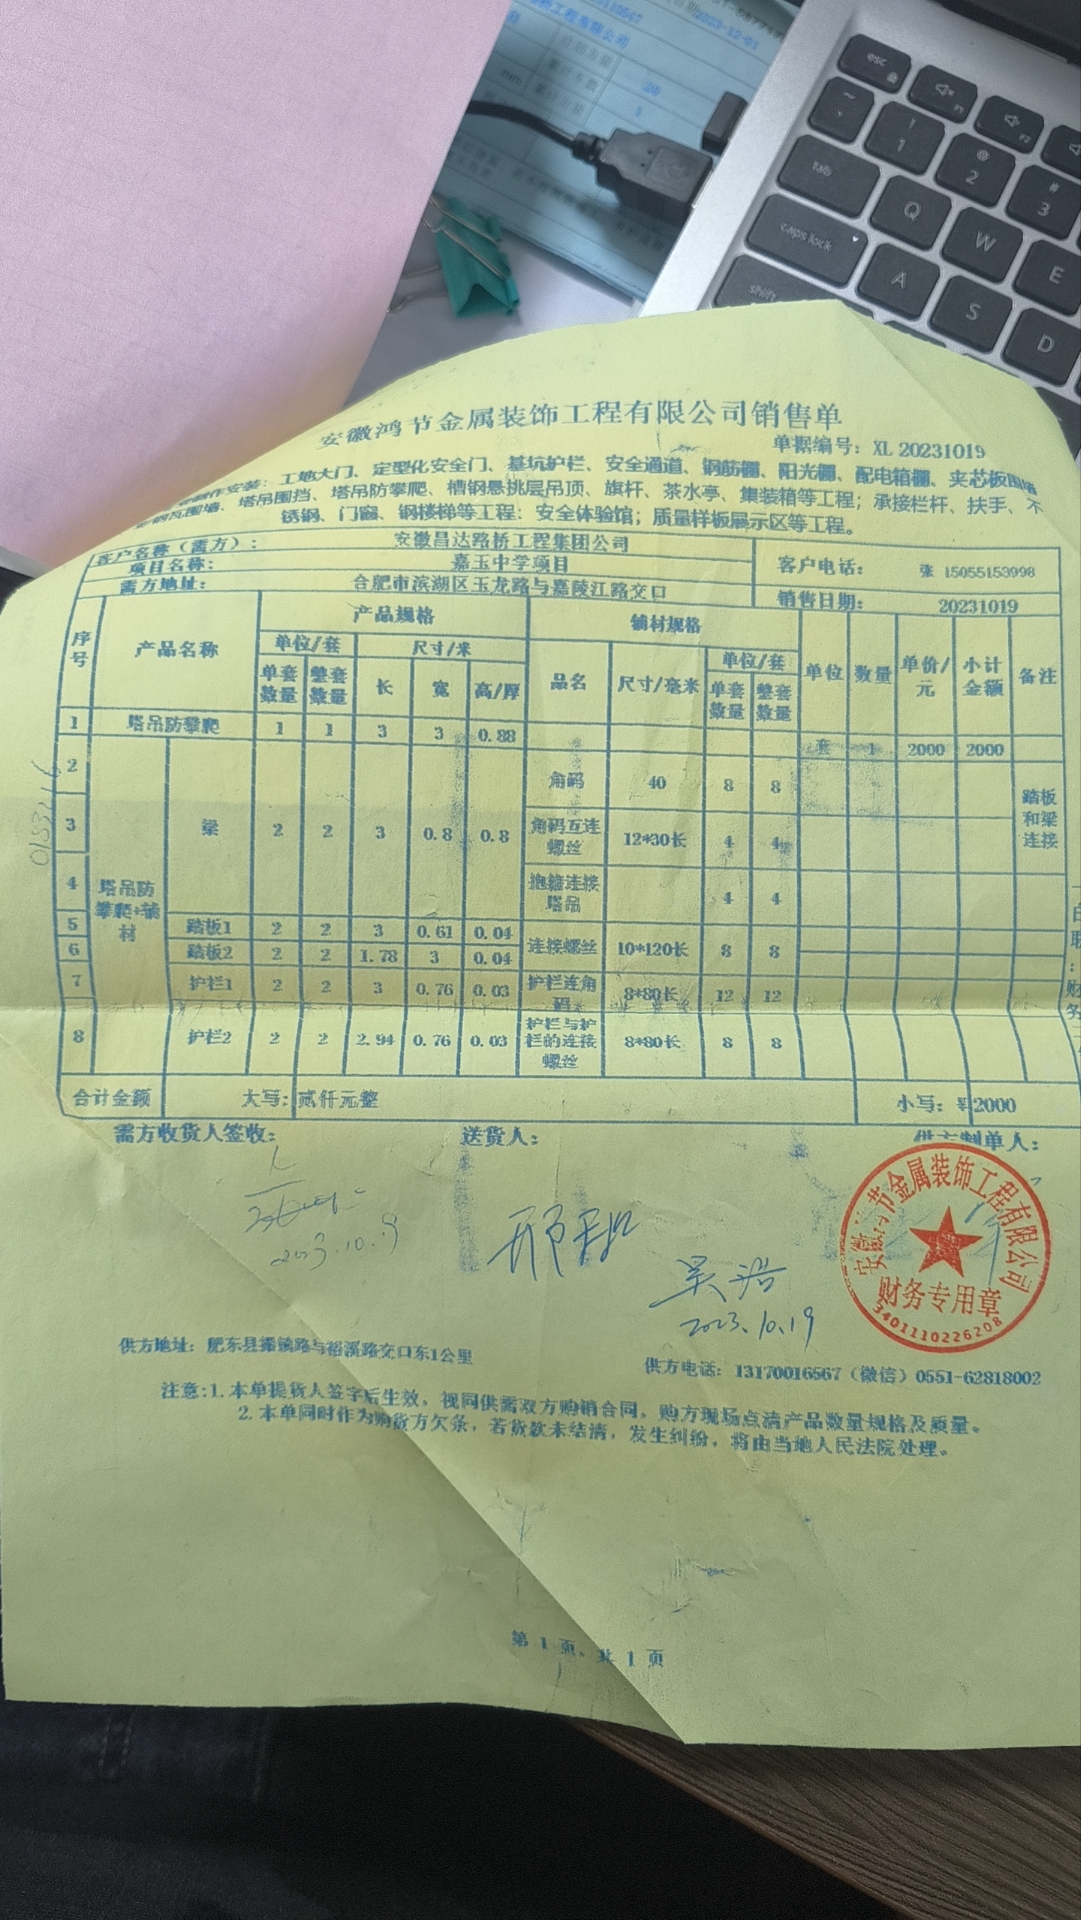 安徽鸿节金属装饰工程有限公司销售单
单据编号：XL 20231019
制作安装：工地大门、定型化安全门、基坑护栏、安全通道、钢筋棚、阳光棚、配电箱棚、夹芯板围墙
瓦围墙、塔吊围挡、塔吊防攀爬、槽钢悬挑层吊顶、旗杆、茶水亭、集装箱等工程；承接栏杆、扶手、不
锈钢、门窗、钢楼梯等工程：安全体验馆；质量样板展示区等工程。
客户名称（需方）： 安徽昌达路桥工程集团公司 客户电话： 张 15055153998
项目名称： 嘉玉中学项目
需方地址： 合肥市滨湖区玉龙路与嘉陵江路交口 销售日期： 20231019
序号 产品名称 产品规格 辅材规格 单位 数量 单价/元 小计金额 备注
单位/套 尺寸/米 品名 尺寸/毫米 单位/套
单套数量 整套数量 长 宽 高/厚 单套数量 整套数量
1 塔吊防攀爬 1 1 3 3 0.88 套 1 2000 2000
2 角码 40 8 8
3 梁 2 2 3 0.8 0.8 角码互连螺丝 12*30长 4 4 踏板和梁连接
4 塔吊防攀爬+辅材 抱箍连接塔吊 4 4
5 踏板1 2 2 3 0.61 0.04 连接螺丝 10*120长 8 8
6 踏板2 2 2 1.78 3 0.04
7 护栏1 2 2 3 0.76 0.03 护栏连角码 8*80长 12 12
8 护栏2 2 2 2.94 0.76 0.03 护栏与护栏的连接螺丝 8*80长 8 8
合计金额 大写：贰仟元整 小写：¥2000
需方收货人签收： 送货人： 供方制单人：
2023.10.19
吴浩
2023.10.19
节金属装饰工程有限公司
财务专用章
3401110226208
供方地址：肥东县撮镇路与裕溪路交口东1公里
供方电话：13170016567（微信）0551-62818002
注意:1.本单提货人签字后生效，视同供需双方购销合同，购方现场点清产品数量规格及质量。
2.本单同时作为购货方欠条，若货款未结清，发生纠纷，将由当地人民法院处理。
第 1 页，共 1 页
esc
F1
F2
1
2
3
tab
Q
W
E
caps lock
A
S
D
shift